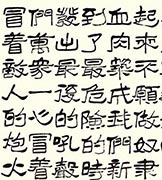 起來不願做奴隸
血肉築成我們新
到了最危險的時
發出最後的吼聲
們萬衆一心冒着
冒着敵人的炮火